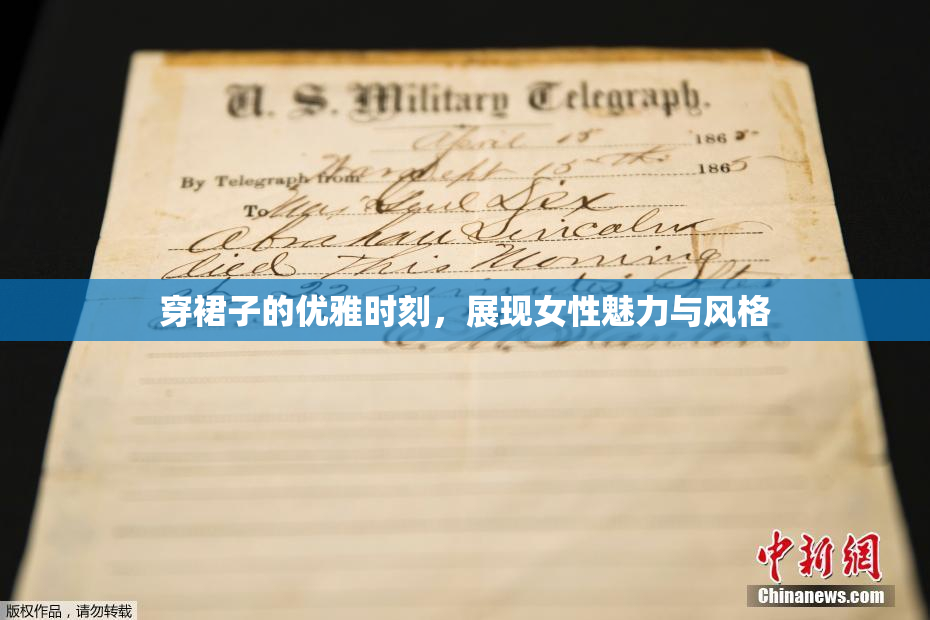 U. S. Military Telegraph.
April 15 1865
By Telegraph from War Dept 15th 1865
To Maj Genl Dix
Abraham Lincoln
died This Morning
at 22 minutes after
穿裙子的优雅时刻，展现女性魅力与风格
E. M. Stanton
中新網
Chinanews.com
版权作品，请勿转载